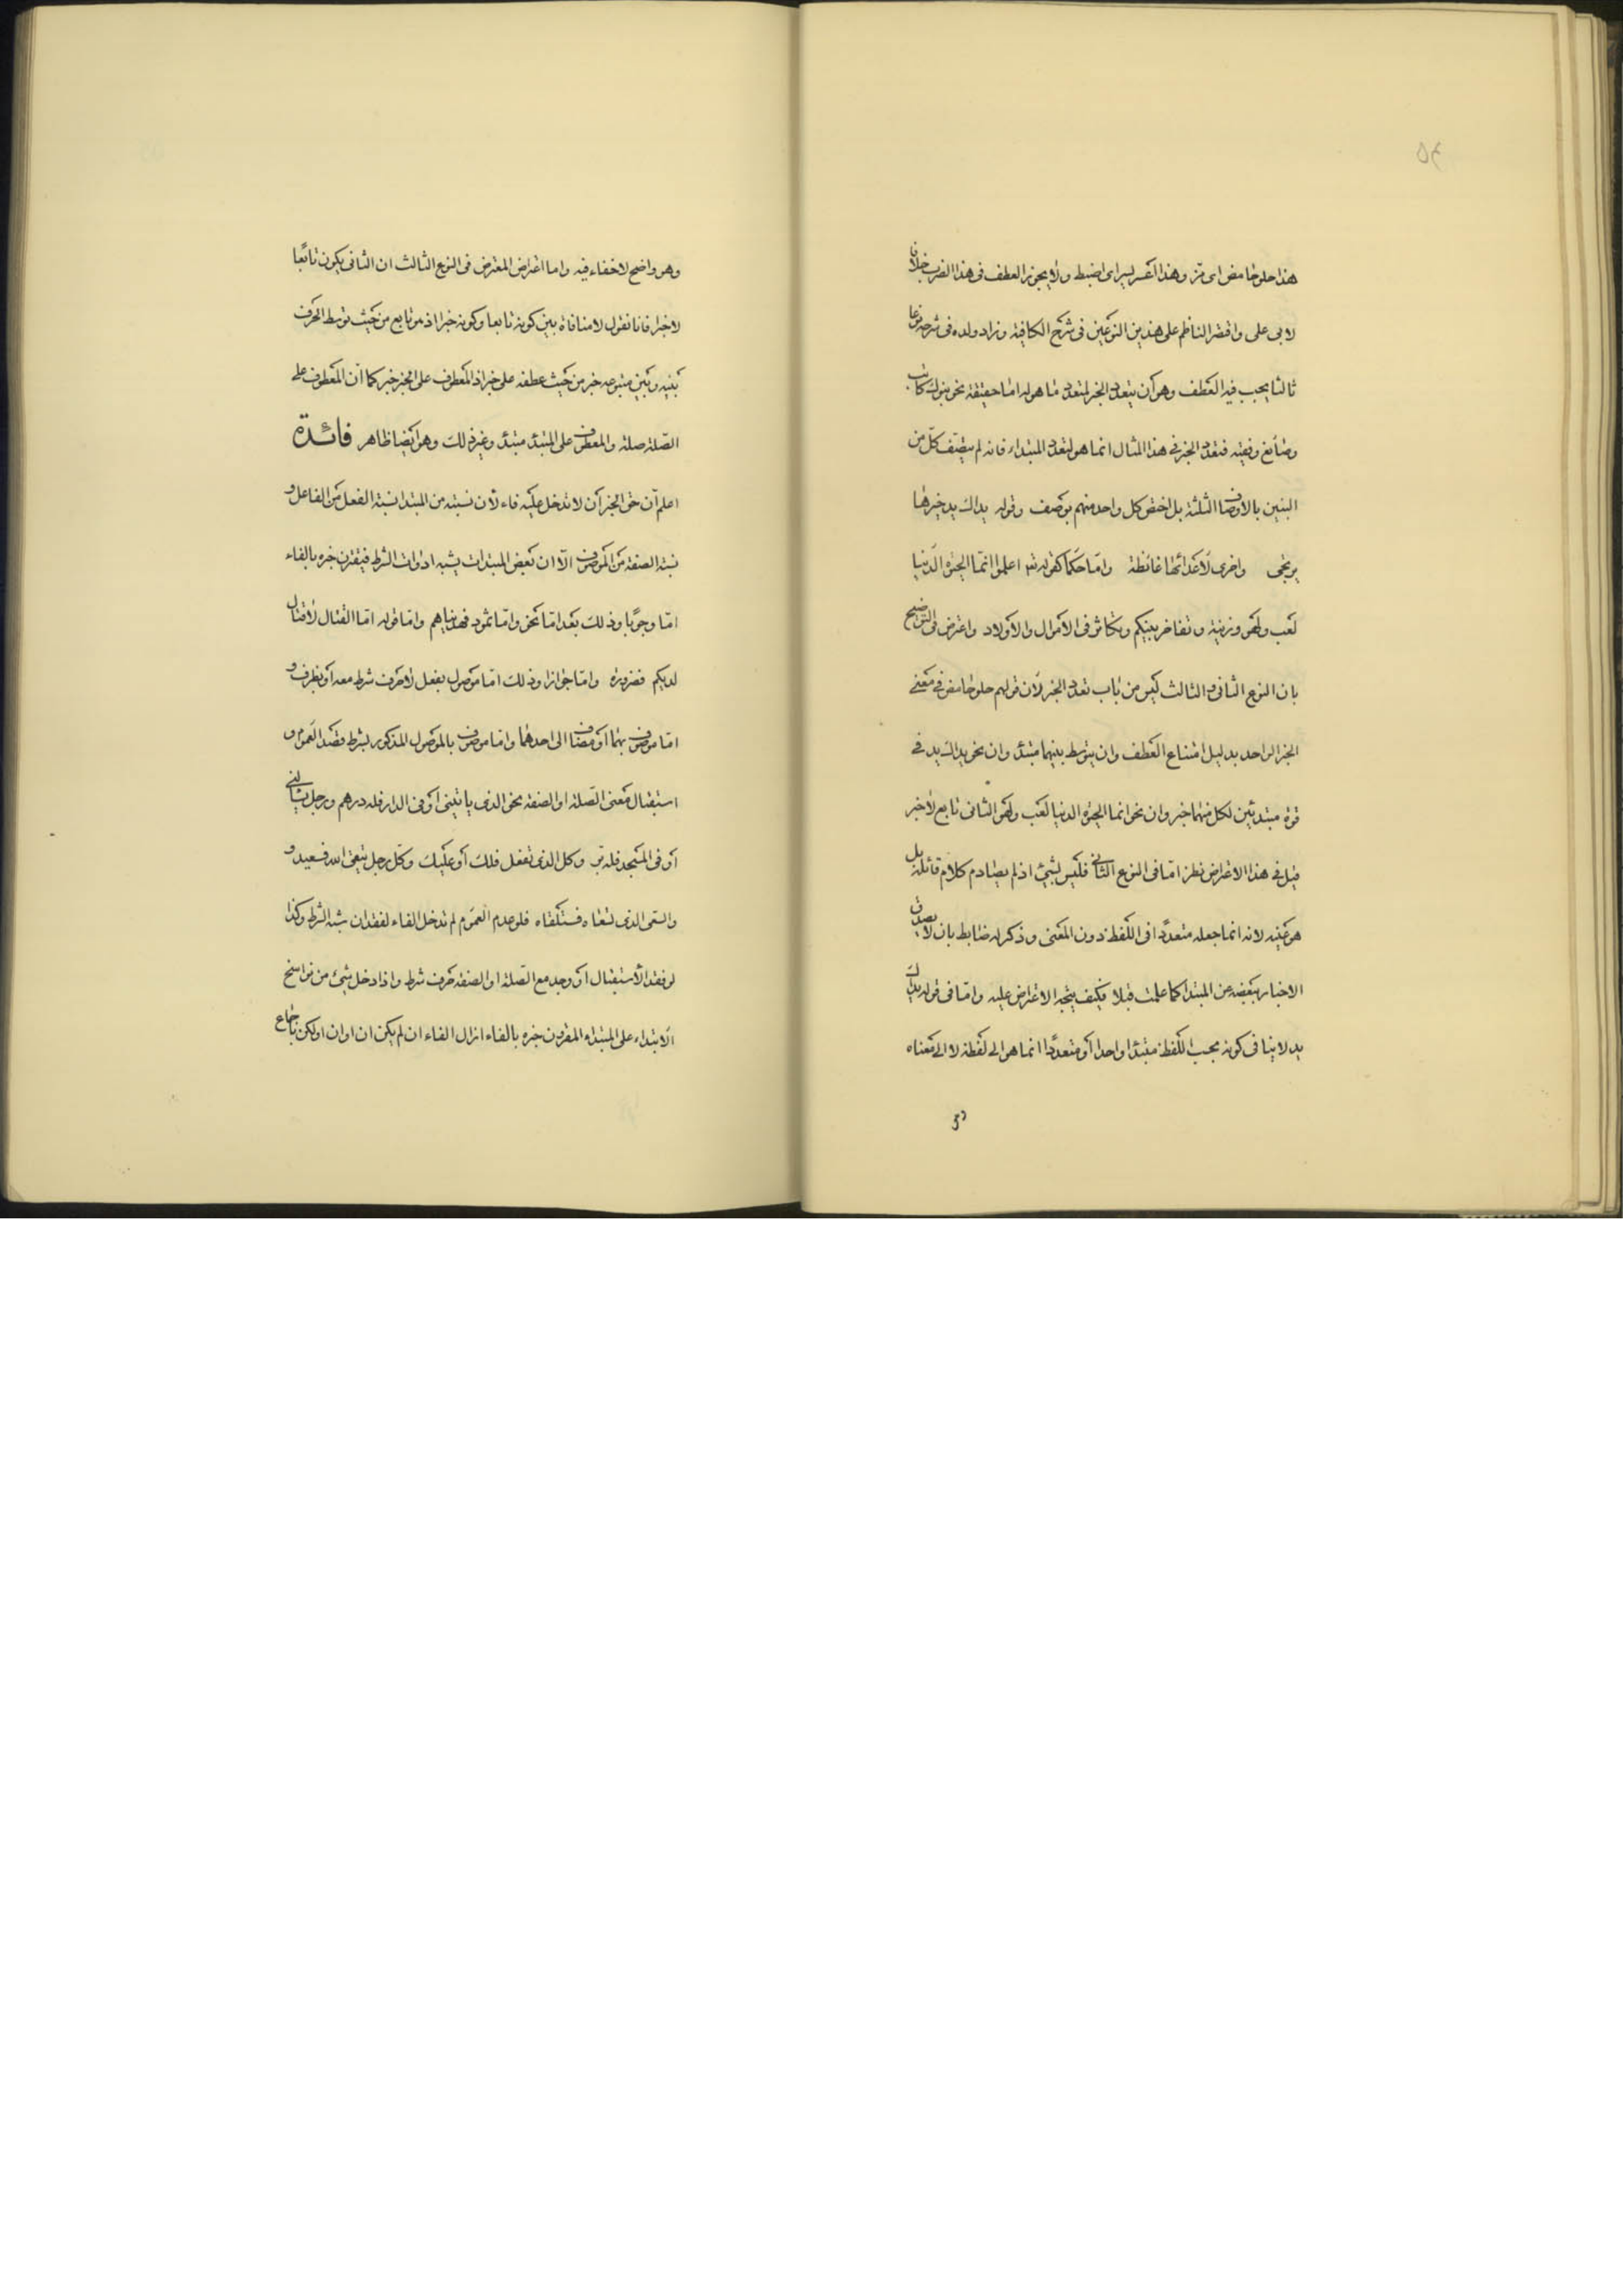 هذا حلو حامض اى مز وهذا اعسر ليسر اى اضبط ولا يجوز العطف فى هذا الضرب خلافا
لابى على واقتصر الناظم على هذين النوعين فى شرح الكافية وزاد ولده فى شرحه نوعا
ثالثا يجب فيه العطف وهو أن يتعدد الخبر لتعدد ما هو له اما حقيقة نحو بنوك كاتب
وصائغ وفقيه فتعدد الخبر فى هذا المثال انما هو لتعدد المبتداء فانه لم يتصف كل من
البنين بالاوصاف الثلثة بل اختص كل واحد منهم بوصف وقوله يداك يد خيرها
يرتجى واخرى لاعدائها غائظة واما حكما كقوله تعـ اعلموا انما الحيوة الدنيا
لعب ولهو وزينة وتفاخر بينكم وتكاثر فى الاموال والاولاد واعترض فى التوضيح
بان النوع الثانى والثالث ليس من باب تعدد الخبر لان قولهم حلو حامض فى معنى
الخبر الواحد بدليل امتناع العطف وان يتوسط بينهما مبتدئ وان نحو يداك يد فى
قوة مبتدئين لكل منهما خبر وان نحو انما الحيوة الدنيا لعب ولهو الثانى تابع لا خبر
قيل فى هذا الاعتراض نظر اما فى النوع الثانى فليس بشئ اذ لم يصادم كلام قائله بل
هو عينه لانه انما جعله متعددا فى اللفظ دون المعنى وذكر له ضابط بان لا يصدق
الاخبار ببعضه عن المبتدا كما علمت قبلا فكيف يتجه الاعتراض عليه واما فى قوله يداك
يد لا ينافى كونه بحسب اللفظ مبتدا واحدا أو متعددا انما هو الى لفظه لا الى معناه
وهو واضح لا خفاء فيه واما اعتراض المعترض فى النوع الثالث ان الثانى يكون تابعا
لا خبرا فانا نقول لا منافاة بين كونه تابعا وكونه خبرا اذ هو تابع من حيث توسط الحرف
بينه وبين متبوعه خبر من حيث عطفه على خبر اذ المعطوف على الخبر خبر كما أن المعطوف على
الصلة صلة والمعطوف على المبتدئ مبتدئ وغير ذلك وهو ايضا ظاهر فائدة
اعلم أن حق الخبر أن لا تدخل عليه فاء لان نسبته من المبتدا نسبة الفعل من الفاعل و
نسبة الصفة من الموصوف الا ان بعض المبتدات يشبه ادوات الشرط فيقترن خبره بالفاء
اما وجوبا وذلك بعد اما نحو واما ثمود فهديناهم واما قوله اما القتال لا قتال
لديكم فضرورة واما جوازا وذلك اما موصول بفعل لا حرف شرط معه أو بظرف و
اما موصوف بهما أو مضاف الى احدهما واما موصوف بالموصول المذكور بشرط قصد العموم و
استقبال معنى الصلة او الصفة نحو الذى يأتينى أو فى الدار فله درهم ورجل يسألنى
أو فى المسجد فله بر وكل الذى تفعل فلك أو عليك وكل رجل يتقى الله فسعيد و
والسعى الذى تسعاه فستلقاه فلو عدم العموم لم تدخل الفاء لفقدان شبه الشرط وكذا
لو فقد الاستقبال أو وجد مع الصلة او الصفة حرف شرط واذا دخل شئ من نواسخ
الابتداء على المبتداء المقرون خبره بالفاء ازال الفاء ان لم يكن ان او ان او لكن باجماع